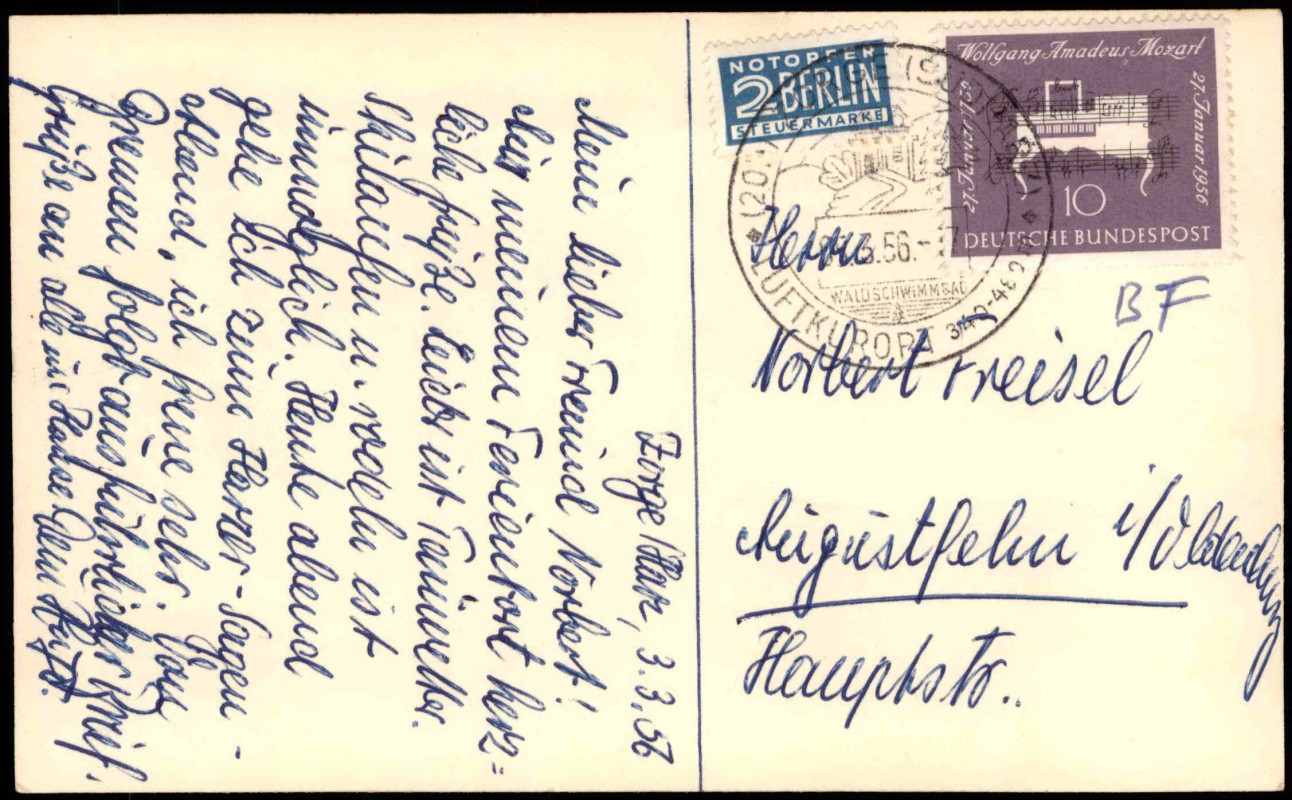 Zorge/Harz, 3.3.56
Mein lieber Freund Norbert!
Aus meinem Ferienort herz=
liche Grüße. Leider ist Tauwetter.
Skilaufen u. rodeln ist
unmöglich. Heute abend
gehe ich zum Harzer-Sagen-
Abend, ich freue sehr. Von
Bremen folgt ausführlicher Brief.
Grüße an alle im Hause. Dein
NOTOPFER
2 BERLIN
STEUERMARKE
Wolfgang Amadeus Mozart
27. Januar 1756
27. Januar 1956
10
DEUTSCHE BUNDESPOST
(20
ZORGE (SÜDHARZ)
.3.56.-17
WALDSCHWIMMBAD
LUFTKURORT
340-
BF
Herrn
Norbert Freisel
Augustfehn i/Oldenburg
Hauptstr.